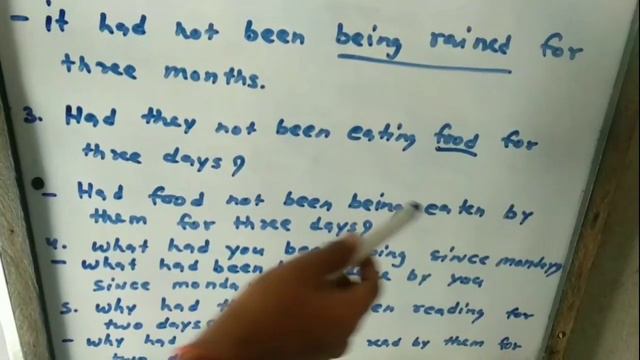 - it had not been being rained for
three months.
3. Had they not been eating food for
three days?
- Had food not been being eaten by
them for three days?
4. what had you been since monday
- what had been by you
since
5. why had reading for
two days
- why had read by them for
two